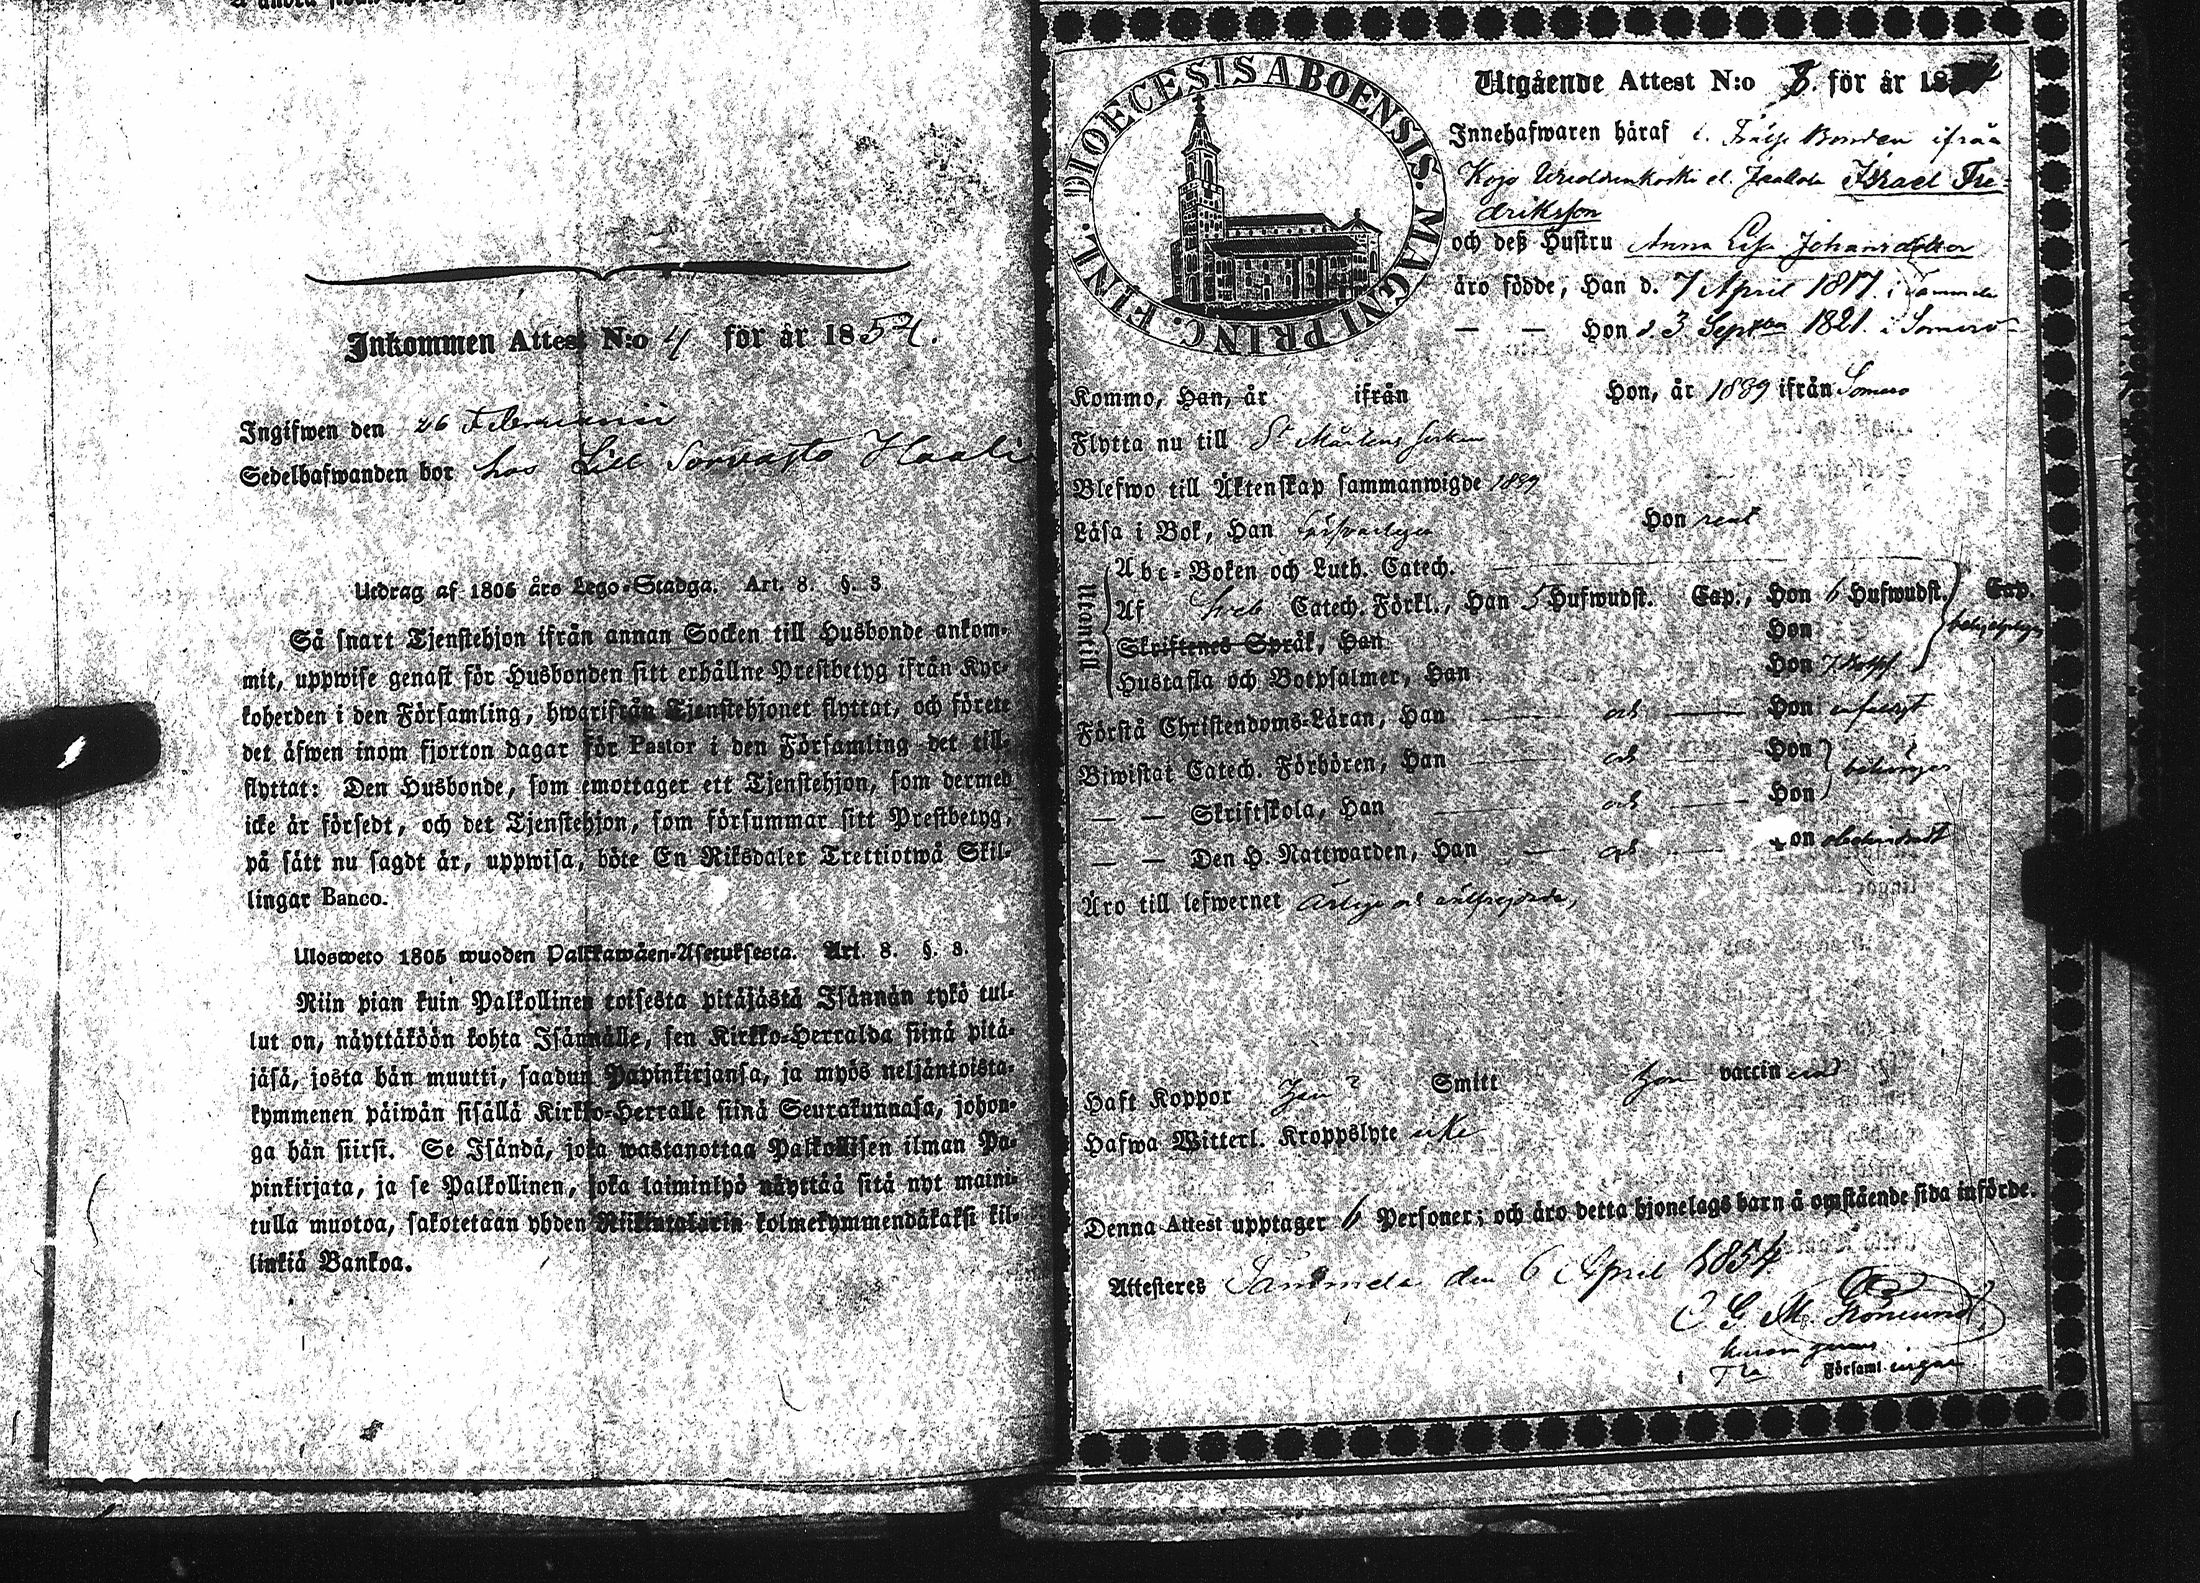 Inkommen Attest N:o 4 för år 1854.
Ingifwen den 26 Februarii
Sedelhafwanden bor hos Lill Sorvasto Haali
Utdrag af 1805 års Lego-Stadga. Art. 8. §. 8.
Så snart Tjenstehjon ifrån annan Socken till Husbonde ankom-
mit, uppwise genast för Husbonden sitt erhållne Prestbetyg ifrån Kyr-
koherden i den Församling, hwarifrån Tjenstehjonet flyttat, och förete
det äfwen inom fjorton dagar för Pastor i den Församling det till-
flyttat: Den Husbonde, som emottager ett Tjenstehjon, som dermed
icke är försedt, och det Tjenstehjon, som försummar sitt Prestbetyg,
på sätt nu sagdt är, uppwisa, böte En Riksdaler Trettiotwå Skil-
lingar Banco.
Ulosweto 1805 wuoden Palkkawäen-Asetuksesta. Art. 8. §. 8.
Niin pian kuin Palkollinen toisesta pitäjästä Isännän tykö tul-
lut on, näyttäköön kohta Isännälle, sen Kirkko-Herralda siinä pitä-
jäsä, josta hän muutti, saadun Papinkirjansa, ja myös neljäntoista-
kymmenen päiwän sisällä Kirkko-Herralle siinä Seurakunnasa, johon-
ga hän siirsi. Se Isändä, joka wastanottaa Palkollisen ilman Pa-
pinkirjata, ja se Palkollinen, joka laiminlyö näyttää sitä nyt maini-
tulla muotoa, sakotetaan yhden Riikintalarin kolmekymmendäkaksi kil-
linkiä Bankoa.
DIOECESIS ABOENSIS. MAGNI PRINC. FINL.
Utgående Attest N:o 8. för år 18
Innehafwaren häraf f. Frälse Bonden ifrån
Kojo Israel Fre-
driksson
och deß Hustru Anna Lisa Johansdotter
äro födde, Han d. 7 April 1817. i Tammela
— — Hon d. 3 Septber 1821. i Somero
Kommo, Han, år ifrån Hon, år 1839 ifrån Somero
Flytta nu till St Mårtens socken
Blefwo till Äktenskap sammanwigde 1839
Läsa i Bok, Han försvarligen Hon rent
Utontill
Abc-Boken och Luth. Catech.
Af Sveb Catech. Förkl., Han 5 Hufwudst. Cap., Hon 6 Hufwudst. Cap.
Skriftenes Språk, Han Hon
Hustafla och Botpsalmer, Han Hon 7 Botps.
Förstå Christendoms-Läran, Han — och — Hon enfaldigt
Biwistat Catech. Förhören, Han — och — Hon
— — Skriftskola, Han — och — Hon
— — Den H. Nattwarden, Han — och — Hon
Äro till lefwernet ärlige och välfrejdade,
Haft Koppor Han Smitt Hon vaccinerad
Hafwa Witterl. Kroppslyte icke
Denna Attest upptager 6 Personer; och äro detta hjonelags barn å omstående sida införde.
Attesteres Tammela den 6 April 1854.
C G M. Grönlund
Församl